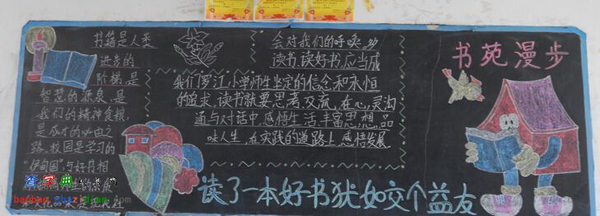 书籍是人类
进步的
阶梯,是
智慧的源泉,是
我们的精神食粮,
是成才的必由之
路,校园是学习的
"伊甸园"与好书相
会对我们的呼唤
读书,读好书应当成
我们罗江小学师生坚定的信念和永恒
的追求,读书就要思考交流,在心灵沟
通与对话中感悟生活,丰富思想,品
味人生,在实践的道路上感悟发展
书苑漫步
读了一本好书犹如交个益友